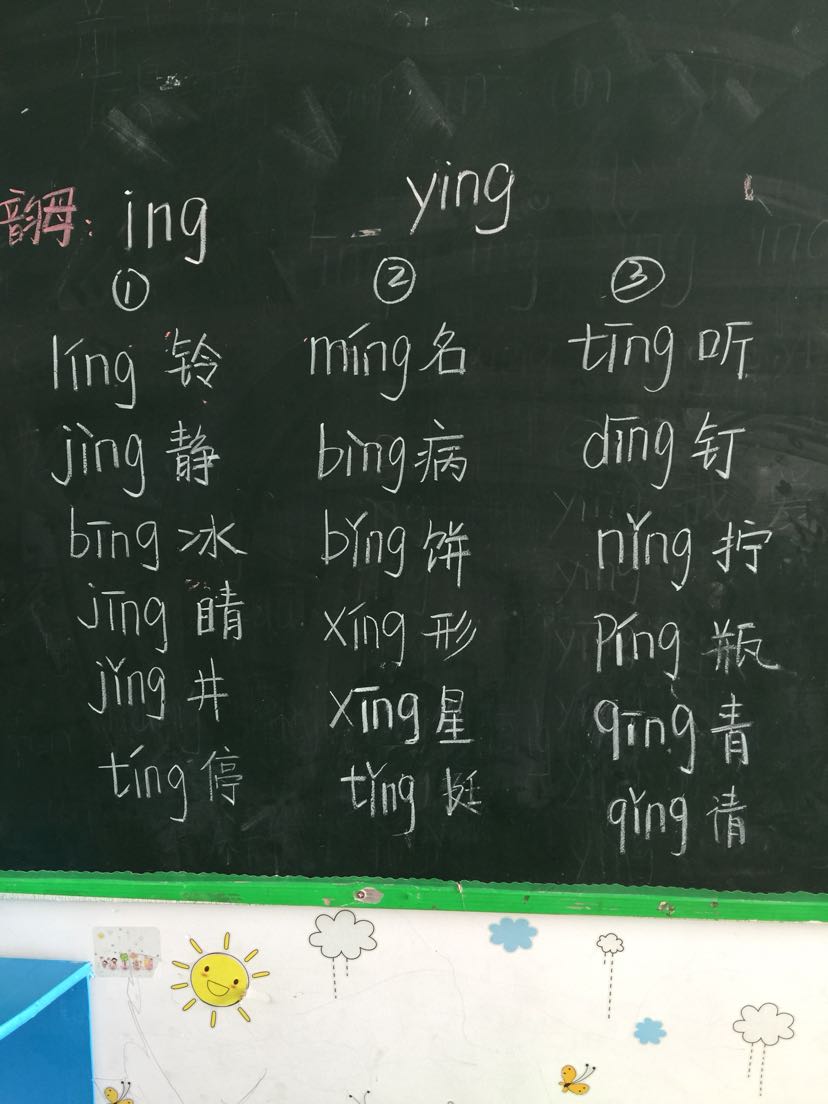 韵母: ing ying
① ② ③
líng 铃 míng 名 tīng 听
jìng 静 bìng 病 dīng 钉
bīng 冰 bǐng 饼 nǐng 拧
jīng 睛 xíng 形 píng 瓶
jǐng 井 xīng 星 qīng 青
tíng 停 tǐng 挺 qǐng 倩